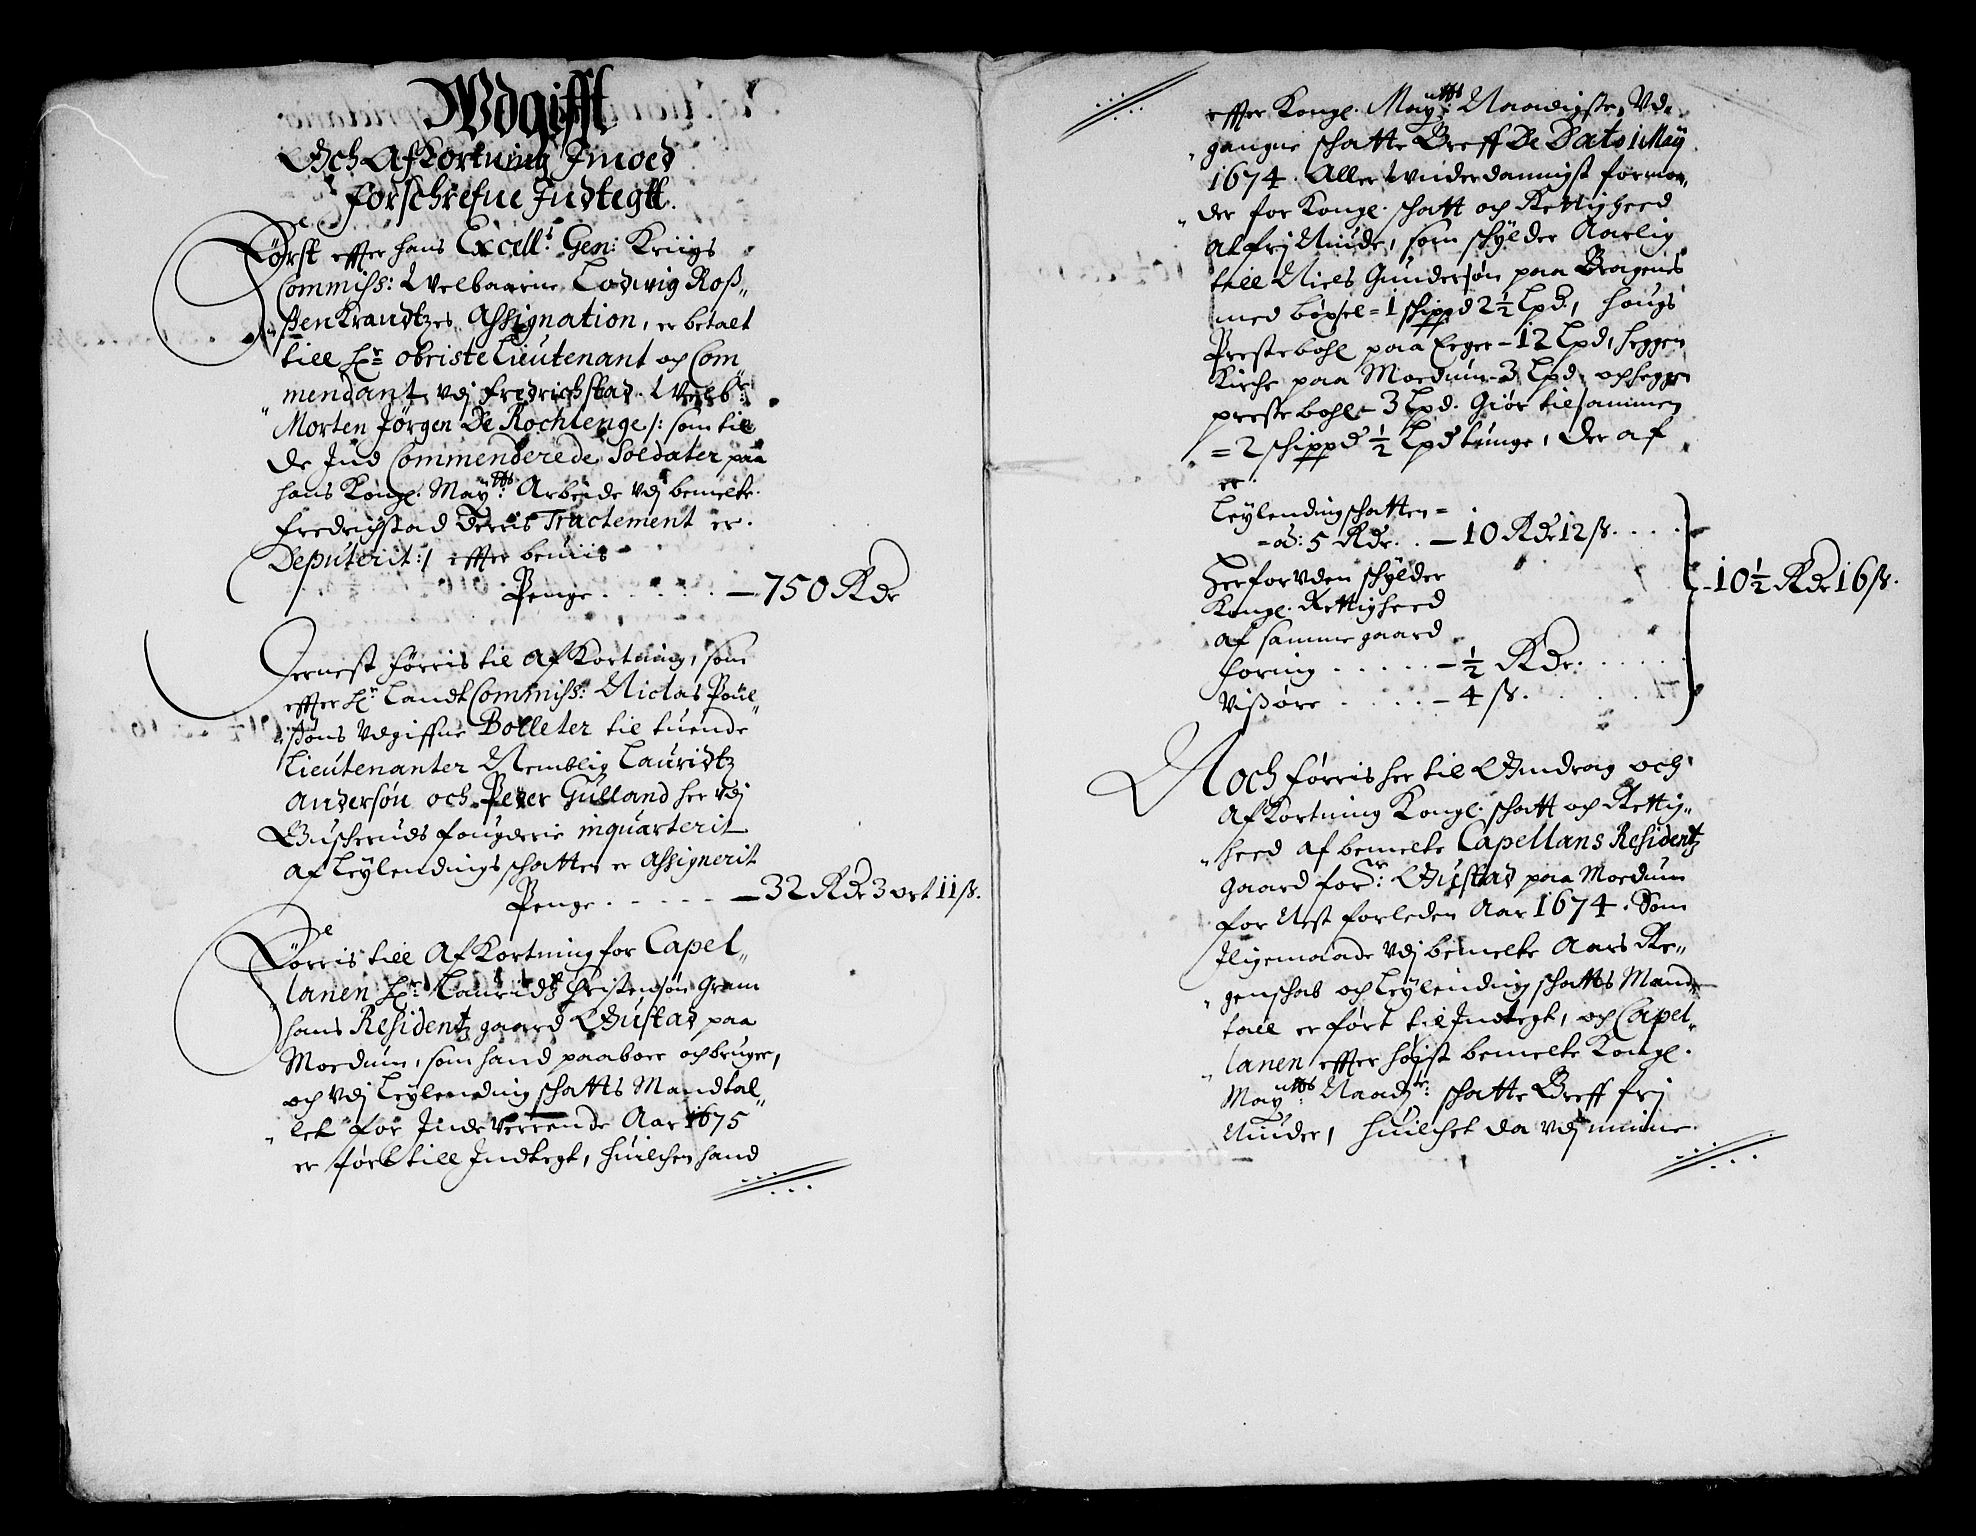 Udgifft
Och AfKortning Jmoed
forschrefne Jndtegtt.
Först effter hans Excell:s Gen: Kriigs
Commiss: Welbaarne Lodwig Roß„
„ßenKrandtzes Assignation, er betalt
till Hr: obriste Lieutenant och Com
mendant, vdj Fredrichstad Welb:e
Morten Jörgen De Rochlenge /: som till
De Jnd Commenderede Soldater paa
hans Kongl: Maytts: Arbeide vdj bemelte
Fredrichstad Derris Tractement er
Deputerit :/ effter beviis
Penge . . . . . . — 750 Rdr
Dernest förris til AfKortning, som
effter Hr: LandtCommiss: Niclas Poul„
„ßöns vdgiffne Bolleter til tuende
Lieutenanter Nemblig Lauridtz
Andersön och Peter Gulland her vdj
Buscheruds fougderie inquarterit
af Leylendings schatten er Assignerit
Penge . . . . . — 32 Rdr 3 ort 11 ß.
Förris till AfKortning for Capel„
„lanen Hr: Lauridtz Christensön Gram
hans Residentz gaard Bustad paa
Moedum, som hand paaboer och bruger,
och vdj Leylending schatts Mandtal„
„let for Jndeverrende Aar 1675
er fört till Jndtegt, huilchen hand
effter Kongl: Maytts: Naadigste, Vd„
„gangne schatte Breff De Dato 1 May
1674. Aller vnderdannigst formo„
„der for Kongl: schatt och Rettigheed
At frj Niude, som schylder Aarlig
till Niels Gundersön paa Bragenes
med böxsel = 1 schippd 2½ Lpd, Hougs
Prestebohl paa Eeger – 12 Lpd, Heggen
Kirche paa Moedum – 3 Lpd. och Heggen
prestebohl – 3 Lpd. Giör tilsammen
= 2 schippd ½ Lpd tunge, Der af
er.
Leylending schatten =
= á: 5 Rdr. . — 10 Rdr 12 ß. . . . .
Herforvden schylder
Kongl: Rettigheed
af samme gaard
foring . . . . . – ½ Rdr. . . . . .
Vißöre . . . . . – 4 ß. . . . .
– 10½ Rdr 16 ß.
Noch förris her til Afdrag och
AfKortning Kongl: schatt och Rettig„
„heed af bemelte Capellans Residentz
gaard for: Bustad paa Moedum
for Nest forleden Aar 1674. Som
Jligemaade vdj bemelte Aars Re„
„genschab och Leylending schatts Mand
tall er fört til Jndtegt, och Capel„
„lanen effter höjst bemelte Kongl:
Maytts: Naadg:e schatte Breff frj
Niuder, huilchet da vdj minne